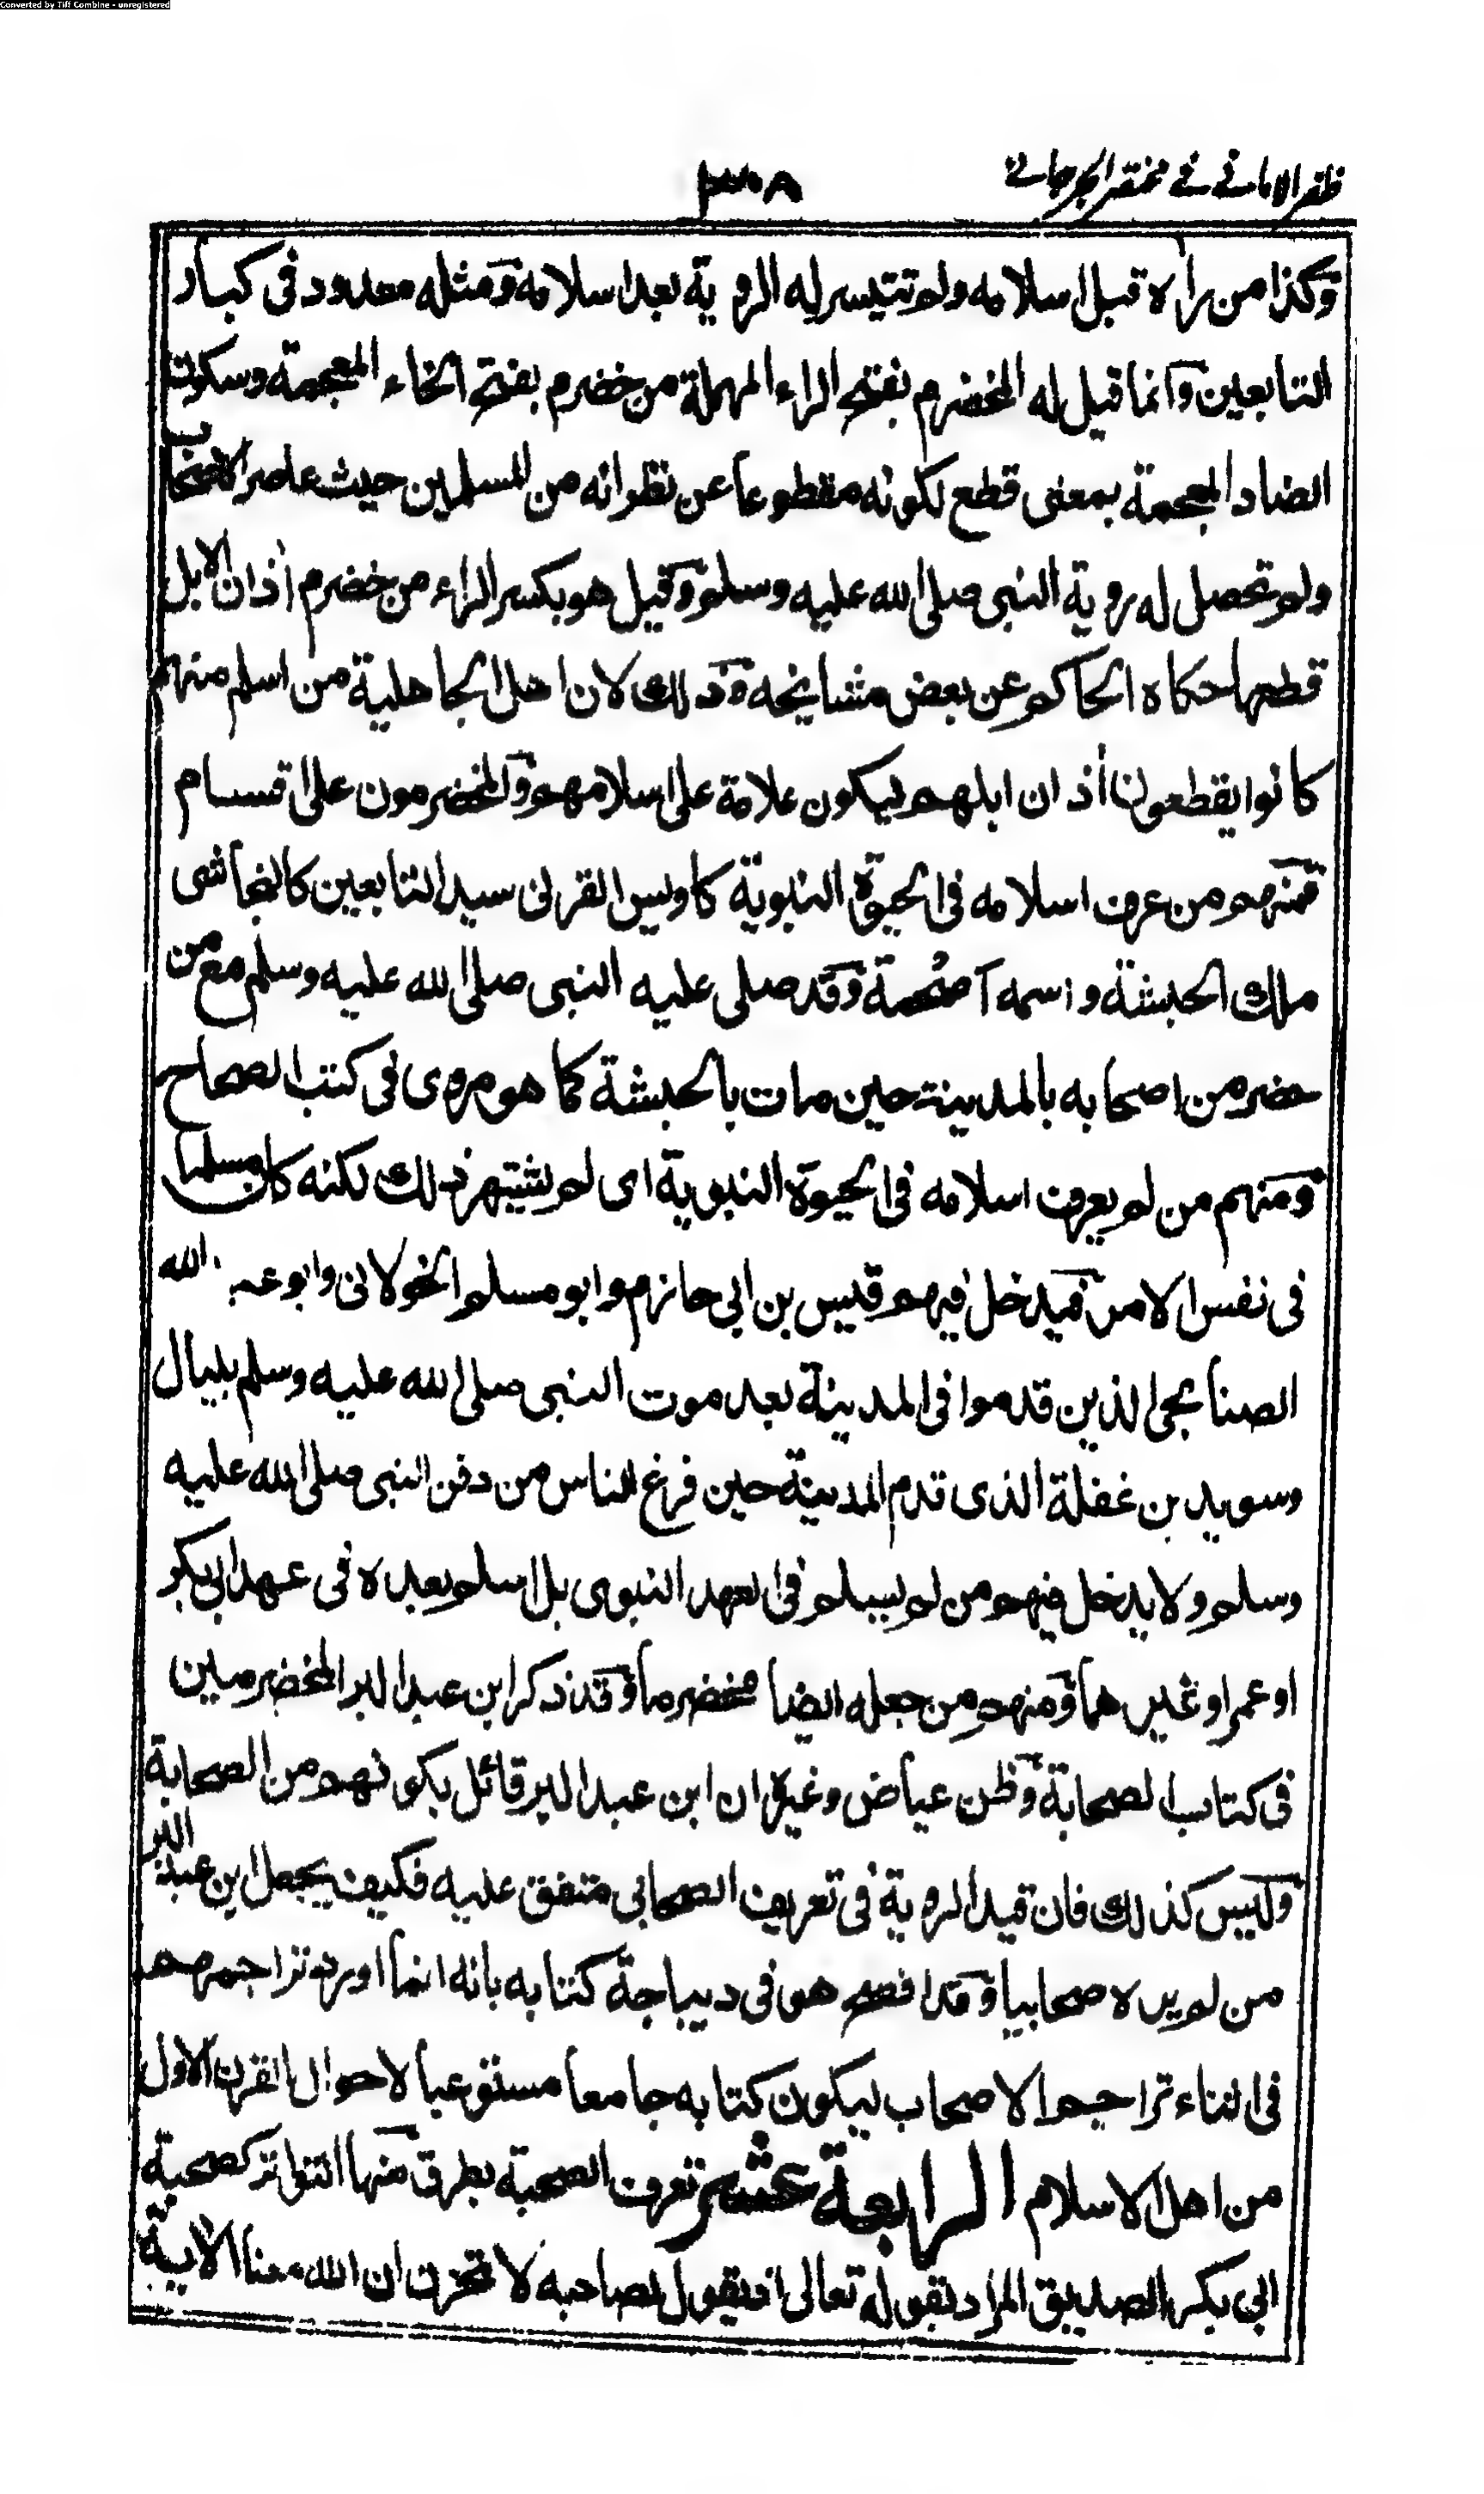 Converted by Tiff Combine - unregistered
ظفر الامانے فے مختصر الجرجانے
٣٠٨
وكذا من رأه قبل اسلامه ولم تتيسر له الروية بعد اسلامه ومثله معدود فى كبار
التابعين وانما قيل له المخضرم بفتح الراء المهملة من خضرم بفتح الخاء المعجمة وسكون
الضاد المعجمة بمعنى قطع لكونه مقطوعا عن نظرائه من المسلمين حيث عاصر الاصحاب
ولم تحصل له روية النبى صلى الله عليه وسلم وقيل هو بكسر الراء من خضرم أذان الابل
قطعها حكاه الحاكم عن بعض مشايخه وذلك لان اهل الجاهلية من اسلم منهم
كانوا يقطعون أذان ابلهم ليكون علامة على اسلامهم والمخضرمون على اقسام
فمنهم من عرف اسلامه فى الحيوة النبوية كاويس القرنى سيد التابعين كالنجاشى
ملك الحبشة واسمه اصحمة وقد صلى عليه النبى صلى الله عليه وسلم مع من
حضر من اصحابه بالمدينة حين مات بالحبشة كما هو مروى فى كتب الصحاح
ومنهم من لم يعرف اسلامه فى الحيوة النبوية اى لم يشتهر ذلك لكنه كان مسلما
فى نفس الامر فيدخل فيهم قيس بن ابى حازم وابو مسلم الخولانى وابو عبد الله
الصنابحى الذين قدموا فى المدينة بعد موت النبى صلى الله عليه وسلم بليال
وسويد بن غفلة الذى قدم المدينة حين فرغ الناس من دفن النبى صلى الله عليه
وسلم ولا يدخل فيهم من لم يسلم فى العهد النبوى بل اسلم بعده فى عهد ابى بكر
او عمر او غيرهما ومنهم من جعله ايضا مخضرما وقد ذكر ابن عبد البر المخضرمين
فى كتاب الصحابة وظن عياض وغيره ان ابن عبد البر قائل بكونهم من الصحابة
وليس كذلك فان قيد الروية فى تعريف الصحابى متفق عليه فكيف يجعل ابن عبد البر
من لم يره صحابيا وقد افصح هو فى ديباجة كتابه بانه انما اورد تراجمهم
فى اثناء تراجم الاصحاب ليكون كتابه جامعا مستوعبا لاحوال القرن الاول
من اهل الاسلام الرابعة عشر تعرف الصحبة بطرق منها التواتر كصحبة
ابى بكر الصديق المراد بقوله تعالى اذ يقول لصاحبه لا تحزن ان الله معنا الاية